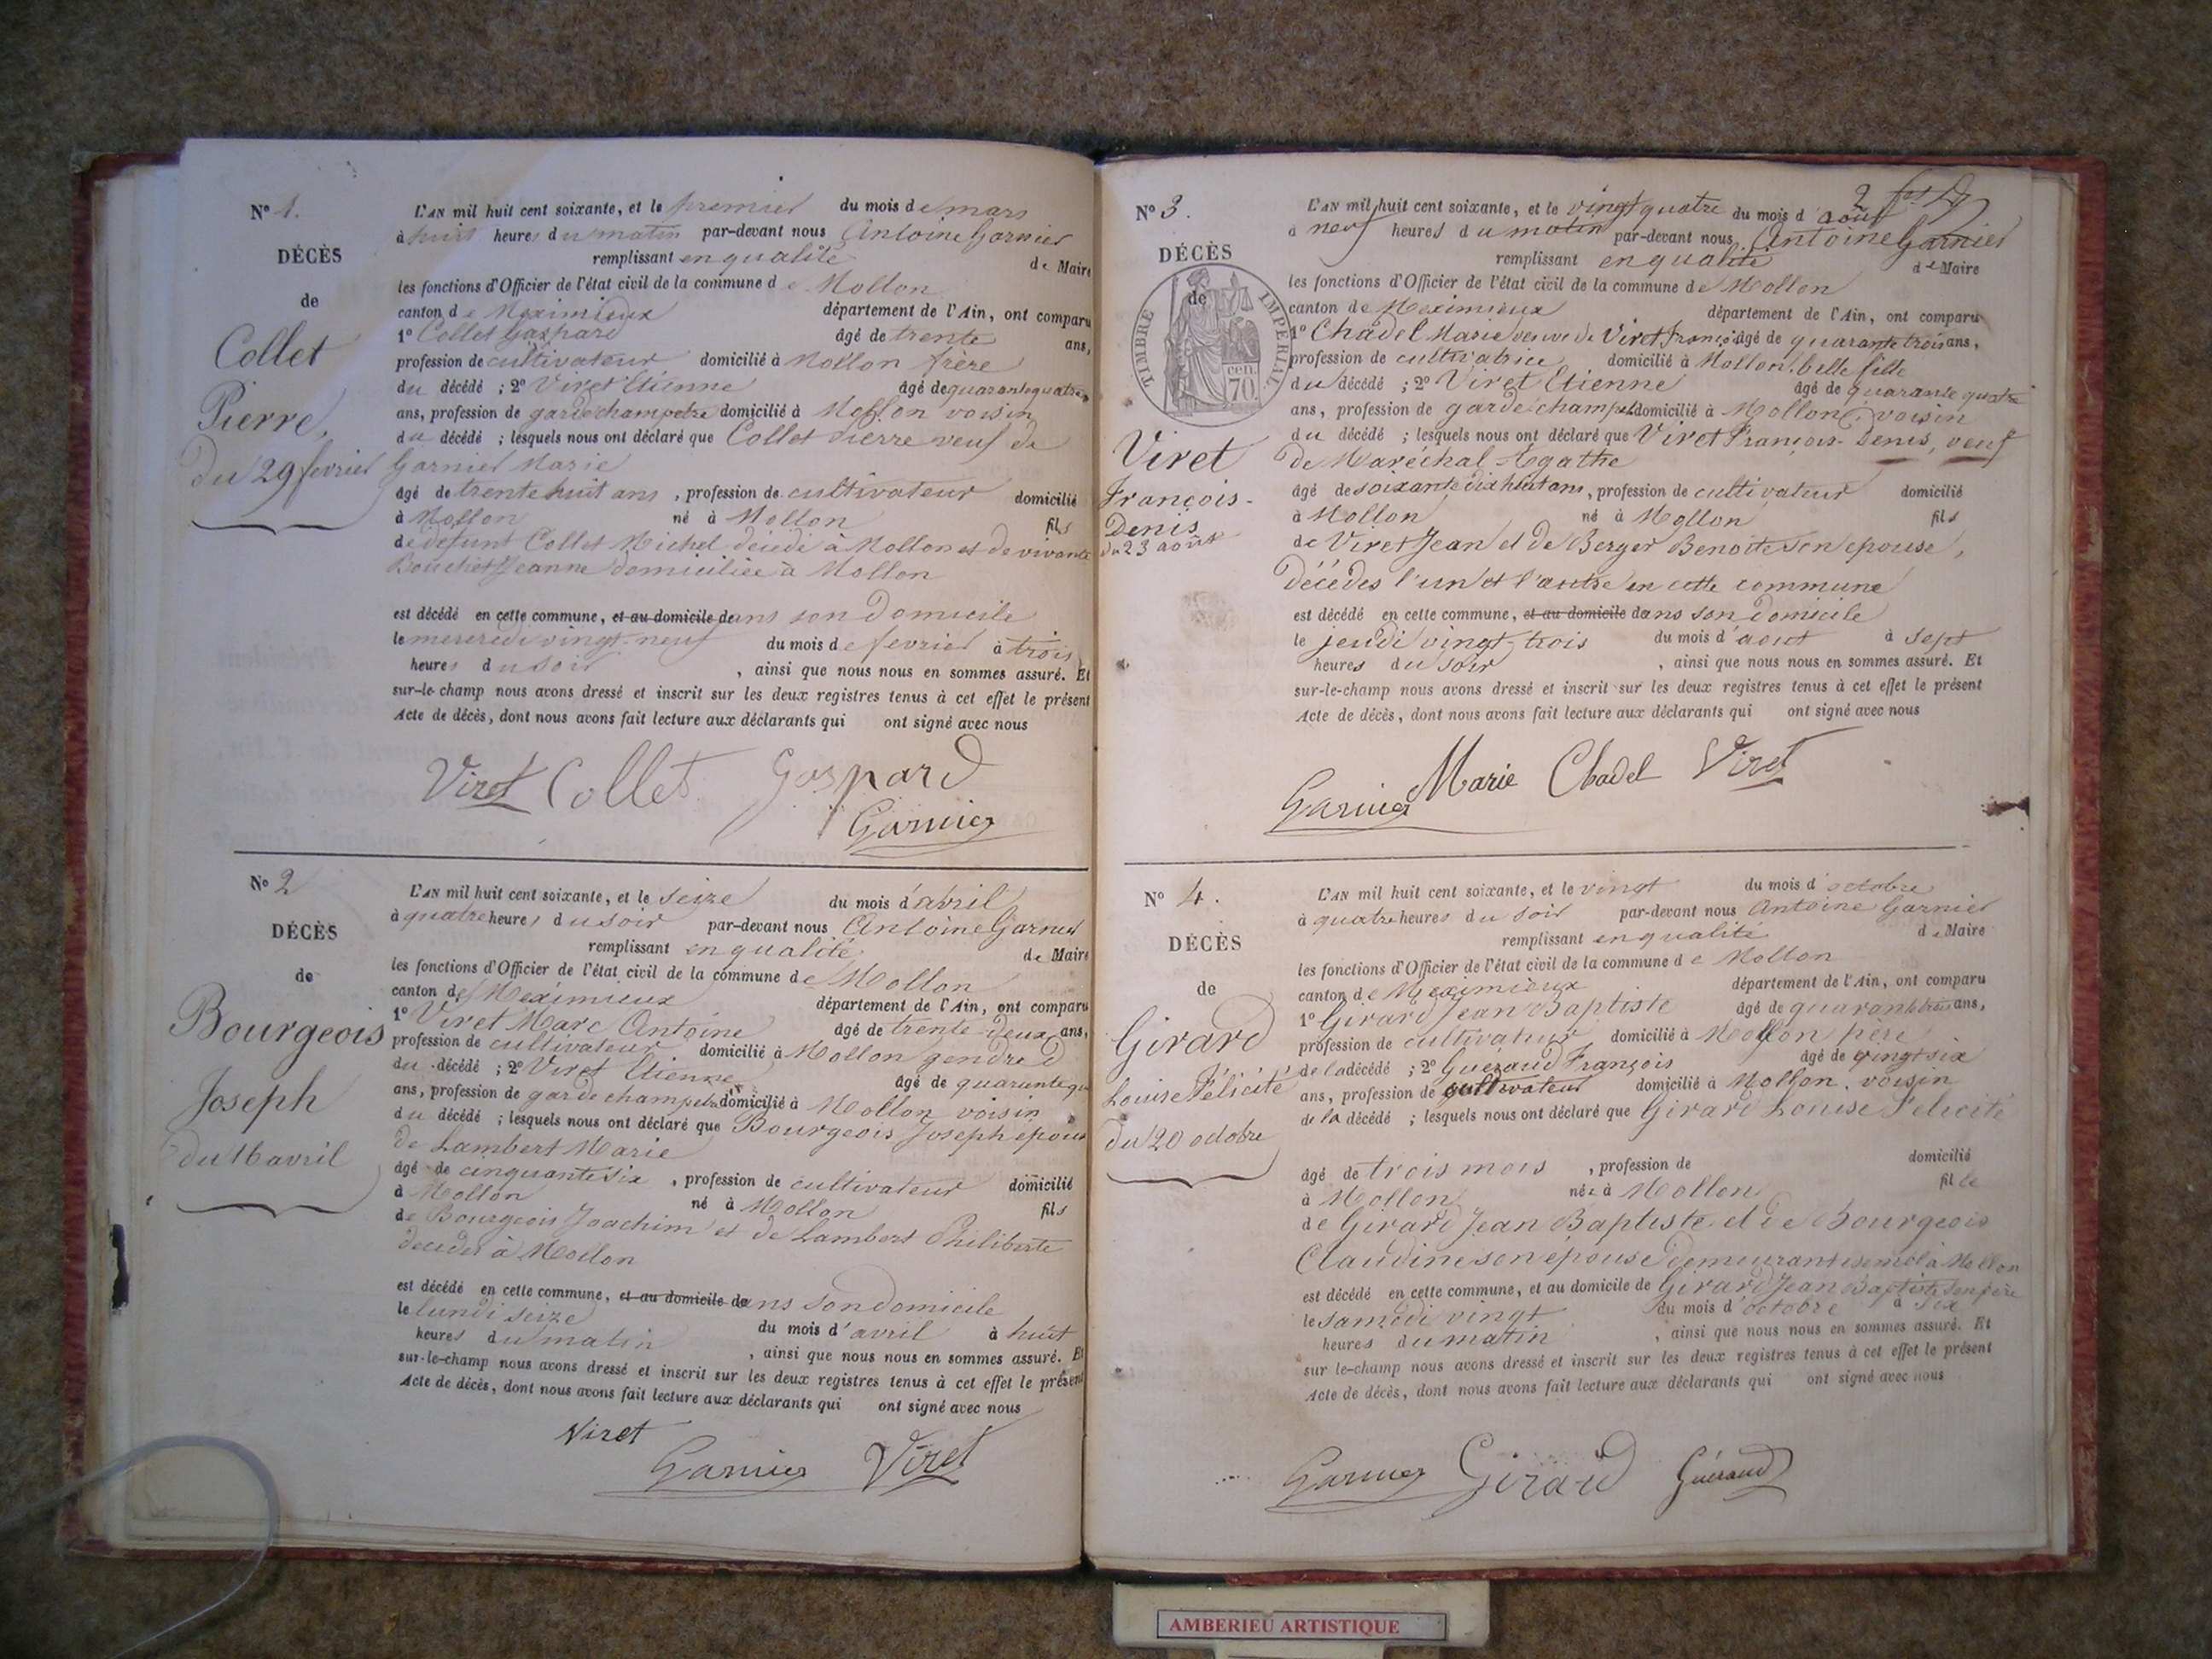 N° 1.
DÉCÈS
de
Collet
Pierre,
du 29 fevrier
L'AN mil huit cent soixante, et le premier du mois de mars
à huit heures du matin par-devant nous Antoine Garnier
remplissant en qualité de Maire
les fonctions d'Officier de l'état civil de la commune de Mollon
canton de Meximieux département de l'Ain, ont comparu
1° Collet Gaspard âgé de trente ans,
profession de cultivateur domicilié à Mollon frère
du décédé ; 2° Viret Etienne âgé de quarante quatre
ans, profession de garde champetre domicilié à Mollon voisin
du décédé ; lesquels nous ont déclaré que Collet Pierre veuf de
Garnier Marie
âgé de trente huit ans, profession de cultivateur domicilié
à Mollon né à Mollon fils
de défunt Collet Michel décédé à Mollon et de vivante
Bouchet Jeanne domiciliée à Mollon
est décédé en cette commune, et au domicile dans son domicile
le mercredi vingt neuf du mois de fevrier à trois
heures du soir, ainsi que nous nous en sommes assuré. Et
sur-le-champ nous avons dressé et inscrit sur les deux registres tenus à cet effet le présent
Acte de décès, dont nous avons fait lecture aux déclarants qui ont signé avec nous
Viret Collet Gaspard
Garnier
N° 2
DÉCÈS
de
Bourgeois
Joseph
du 16 avril
L'AN mil huit cent soixante, et le seize du mois d'avril
à quatre heures du soir par-devant nous Antoine Garnier
remplissant en qualité de Maire
les fonctions d'Officier de l'état civil de la commune de Mollon
canton de Meximieux département de l'Ain, ont comparu
1° Viret Marc Antoine âgé de trente deux ans,
profession de cultivateur domicilié à Mollon gendre
du décédé ; 2° Viret Etienne âgé de quarante qu
ans, profession de garde champetre domicilié à Mollon voisin
du décédé ; lesquels nous ont déclaré que Bourgeois Joseph époux
de Lambert Marie
âgé de cinquante six, profession de cultivateur domicilié
à Mollon né à Mollon fils
de Bourgeois Joachim et de Lambert Philiberte
décédés à Mollon
est décédé en cette commune, et au domicile dans son domicile
le lundi seize du mois d'avril à huit
heures du matin, ainsi que nous nous en sommes assuré. Et
sur-le-champ nous avons dressé et inscrit sur les deux registres tenus à cet effet le présent
Acte de décès, dont nous avons fait lecture aux déclarants qui ont signé avec nous
Viret
Garnier Viret
N° 3.
DÉCÈS
de
TIMBRE IMPÉRIAL
70 cen.
Viret
François-
Denis
du 23 août
L'AN mil huit cent soixante, et le vingt quatre du mois d'août
à neuf heures du matin par-devant nous Antoine Garnier
remplissant en qualité de Maire
les fonctions d'Officier de l'état civil de la commune de Mollon
canton de Meximieux département de l'Ain, ont comparu
1° Chadel Marie veuve de Viret François âgé de quarante trois ans,
profession de cultivatrice domicilié à Mollon, belle fille
du décédé ; 2° Viret Etienne âgé de quarante quatre
ans, profession de garde champetre domicilié à Mollon, voisin
du décédé ; lesquels nous ont déclaré que Viret François-Denis, veuf
de Maréchal Agathe
âgé de soixante dix huit ans, profession de cultivateur domicilié
à Mollon né à Mollon fils
de Viret Jean et de Berger Benoite son epouse,
décédés l'un et l'autre en cette commune
est décédé en cette commune, et au domicile dans son domicile
le jeudi vingt-trois du mois d'aout à sept
heures du soir, ainsi que nous nous en sommes assuré. Et
sur-le-champ nous avons dressé et inscrit sur les deux registres tenus à cet effet le présent
Acte de décès, dont nous avons fait lecture aux déclarants qui ont signé avec nous
Garnier Marie Chadel Viret
N° 4.
DÉCÈS
de
Girard
Louise Félicité
du 20 octobre
L'AN mil huit cent soixante, et le vingt du mois d'octobre
à quatre heures du soir par-devant nous Antoine Garnier
remplissant en qualité de Maire
les fonctions d'Officier de l'état civil de la commune de Mollon
canton de Meximieux département de l'Ain, ont comparu
1° Girard Jean Baptiste âgé de quarante trois ans,
profession de cultivateur domicilié à Mollon père
de la décédé ; 2° Guéraud François âgé de vingt six
ans, profession de cultivateur domicilié à Mollon, voisin
de la décédé ; lesquels nous ont déclaré que Girard Louise Félicité
âgé de trois mois, profession de domicilié
à Mollon née à Mollon fille
de Girard Jean Baptiste et de Bourgeois
Claudine son épouse demeurant à Mollon
est décédé en cette commune, et au domicile de Girard Jean Baptiste son père
le samedi vingt du mois d'octobre à six
heures du matin, ainsi que nous nous en sommes assuré. Et
sur le-champ nous avons dressé et inscrit sur les deux registres tenus à cet effet le présent
Acte de décès, dont nous avons fait lecture aux déclarants qui ont signé avec nous
Garnier Girard Guéraud
AMBERIEU ARTISTIQUE